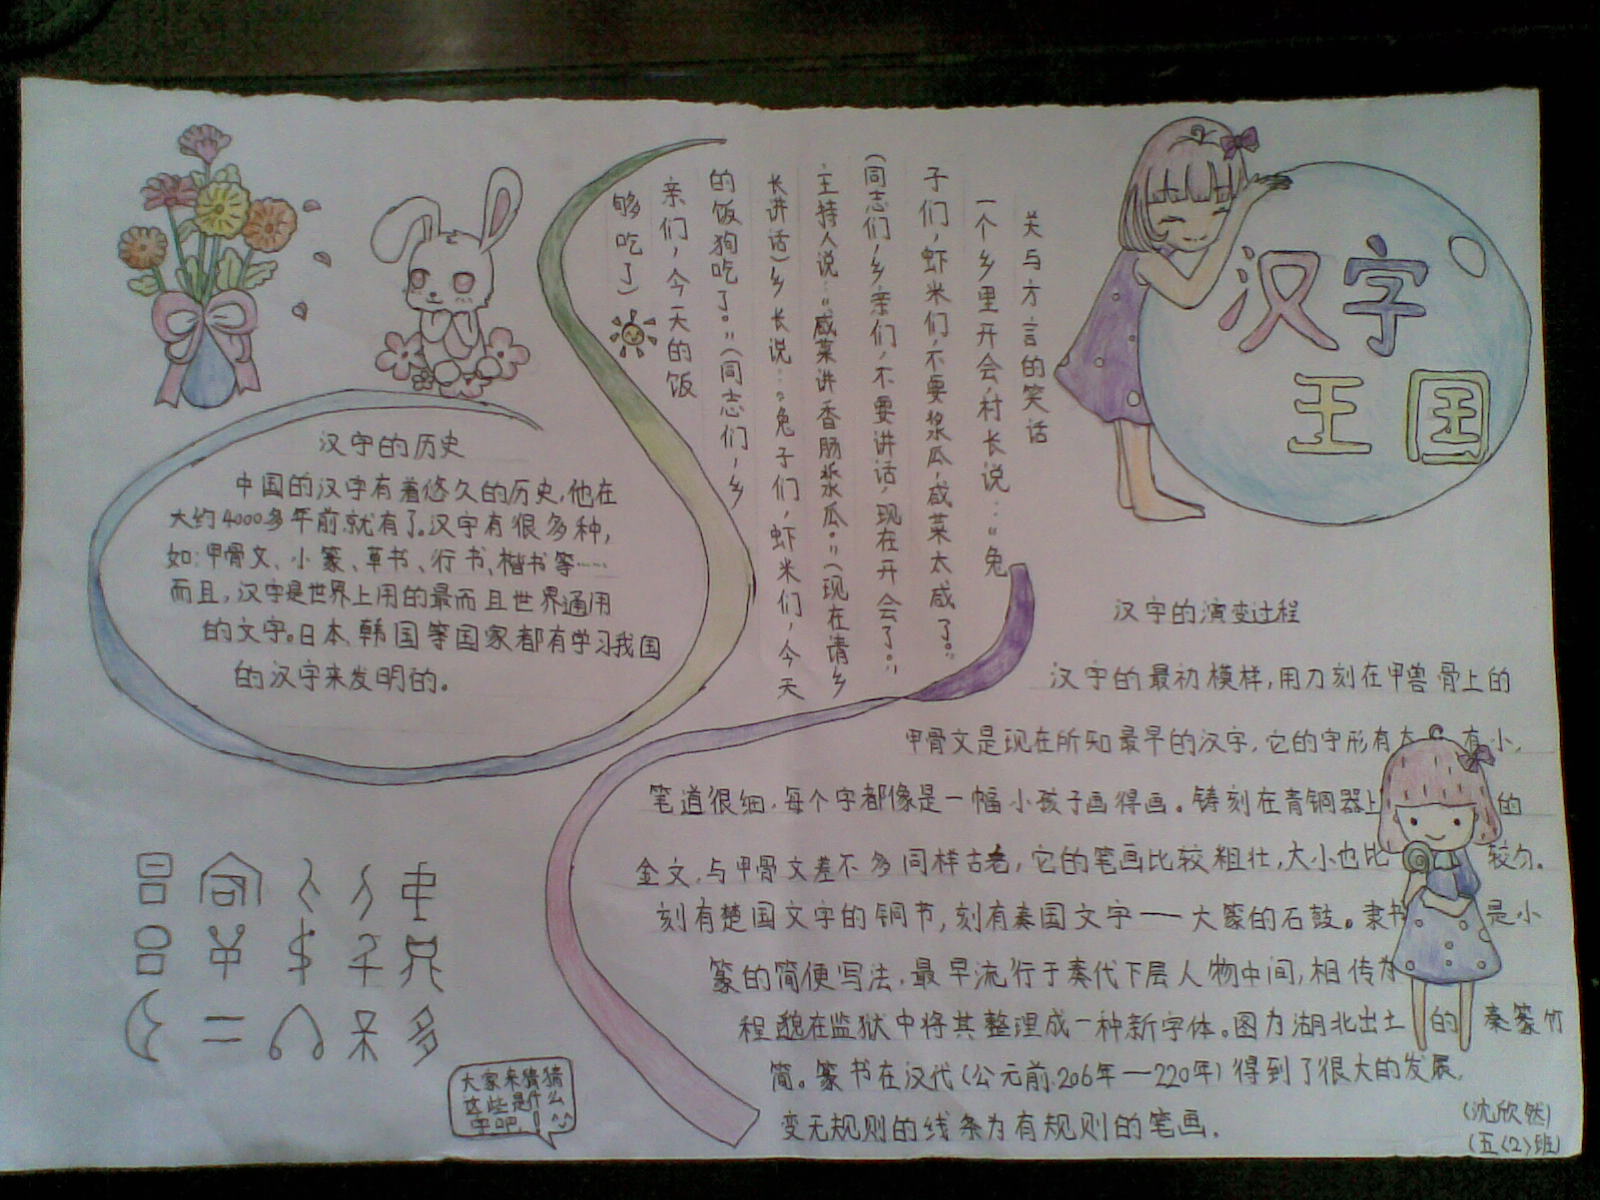 汉字
王国
关与方言的笑话
一个乡里开会,村长说:"兔
子们,虾米们,不要浆瓜,咸菜太咸了。"
(同志们,乡亲们,不要讲话,现在开会了。"
主持人说:"咸菜讲香肠浆瓜。"(现在请乡
长讲话)乡长说:"兔子们,虾米们,今天
的饭狗吃了。"(同志们,乡
亲们,今天的饭
够吃了)
汉字的历史
中国的汉字有着悠久的历史,他在
大约4000多年前就有了。汉字有很多种,
如:甲骨文、小篆、草书、行书、楷书等……
而且,汉字是世界上用的最而且世界通用
的文字。日本、韩国等国家都有学习我国
的汉字来发明的。
汉字的演变过程
汉字的最初模样,用刀刻在甲兽骨上的
甲骨文是现在所知最早的汉字,它的字形有大有小,
笔道很细,每个字都像是一幅小孩子画得画。铸刻在青铜器上的
金文,与甲骨文差不多同样古老,它的笔画比较粗壮,大小也比较匀。
刻有楚国文字的铜节,刻有秦国文字——大篆的石鼓。隶书是小
篆的简便写法,最早流行于秦代下层人物中间,相传为
程邈在监狱中将其整理成一种新字体。图为湖北出土的秦篆竹
简。篆书在汉代(公元前206年—220年)得到了很大的发展,
变无规则的线条为有规则的笔画.
大家来猜猜
这些是什么
字吧!
(沈欣然)
(五〈2〉班)